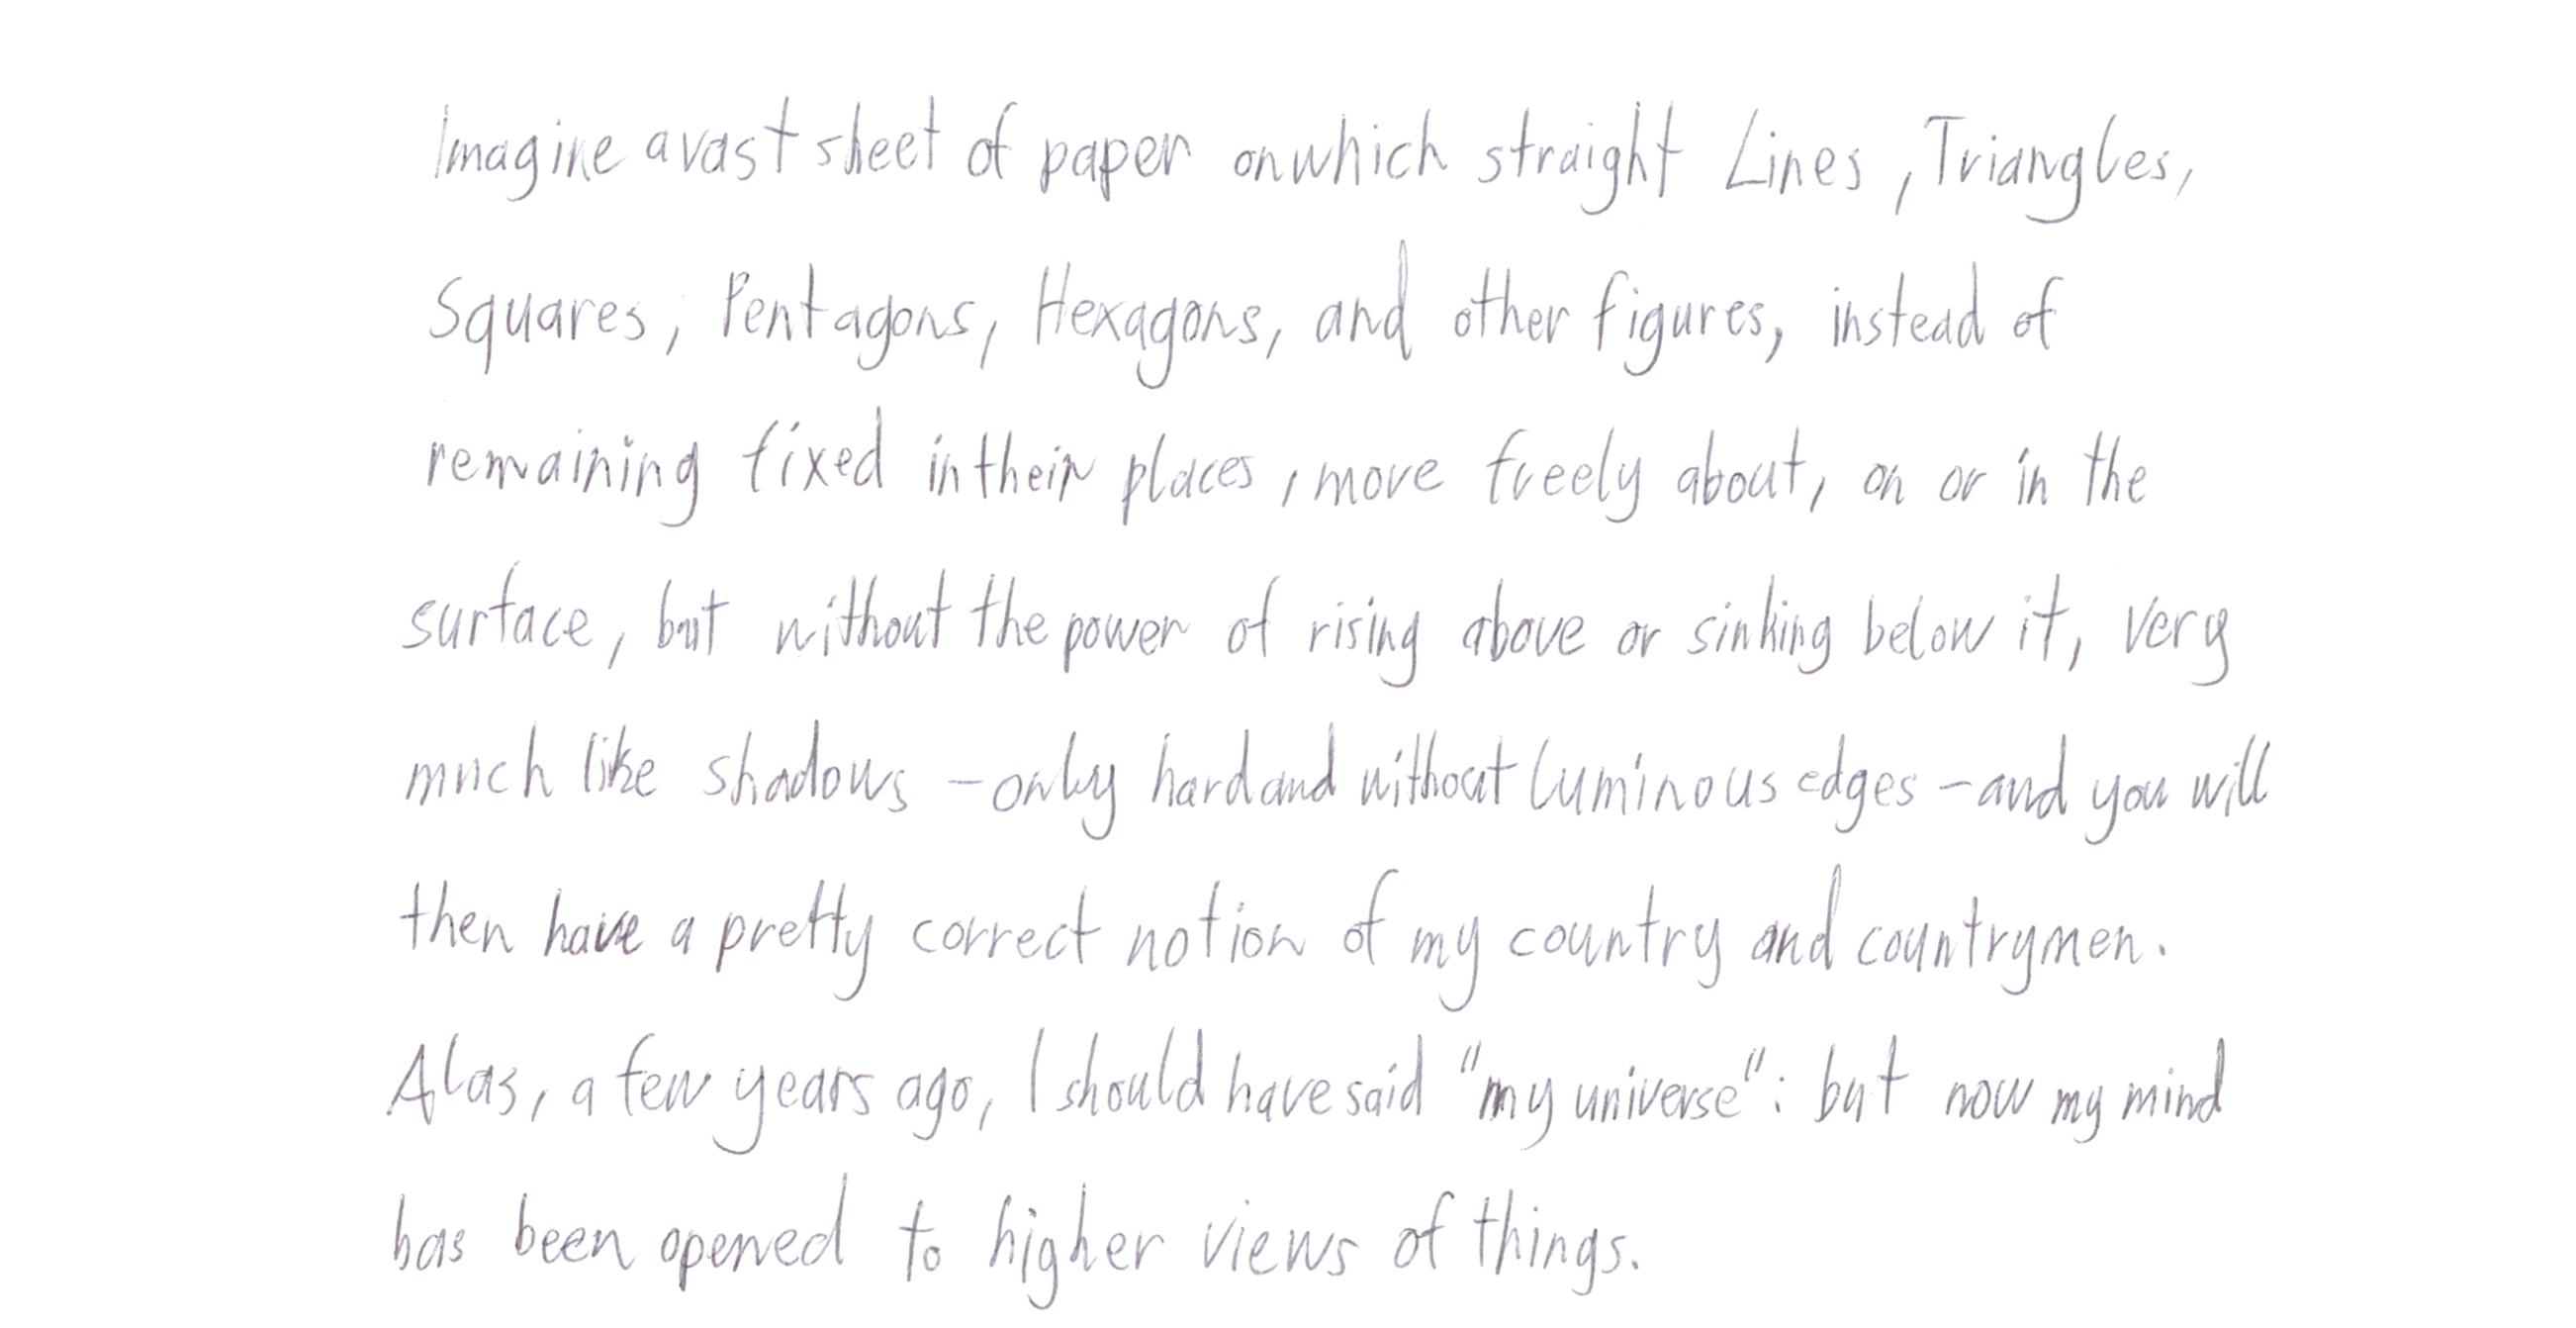 Imagine a vast sheet of paper on which straight Lines, Triangles,
Squares, Pentagons, Hexagons, and other figures, instead of
remaining fixed in their places, move freely about, on or in the
surface, but without the power of rising above or sinking below it, very
much like shadows - only hard and without luminous edges - and you will
then have a pretty correct notion of my country and countrymen.
Alas, a few years ago, I should have said "my universe": but now my mind
has been opened to higher views of things.